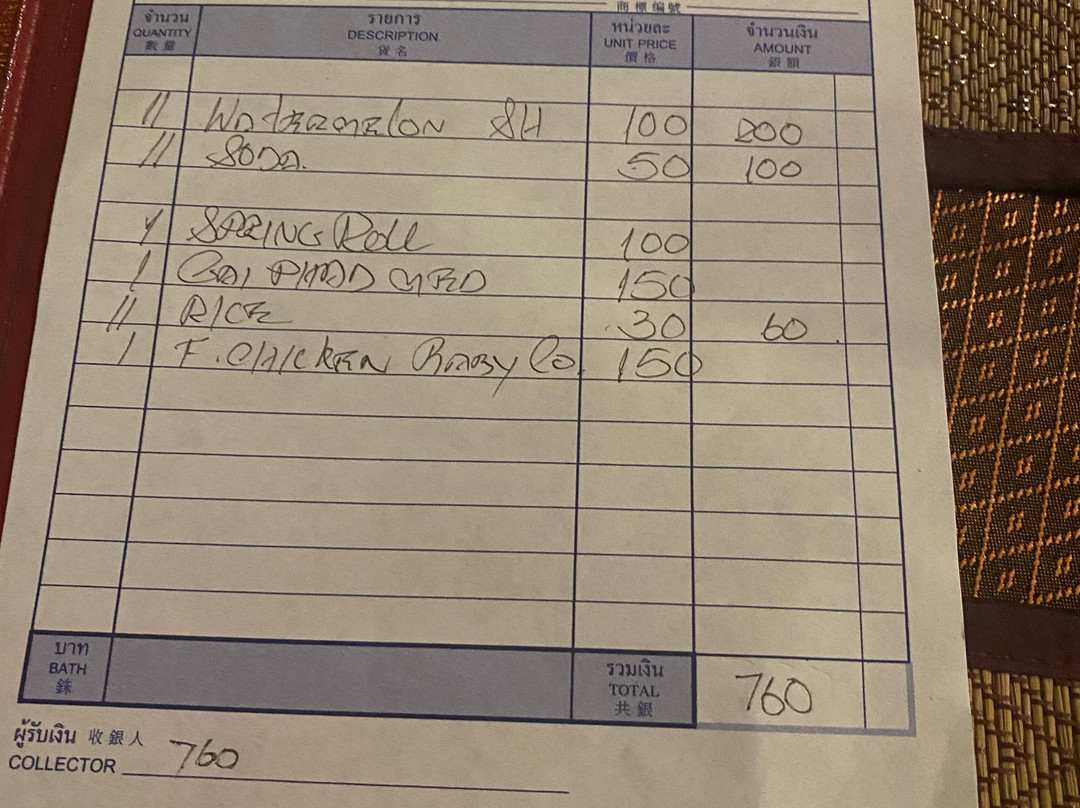 商標編號
จำนวน รายการ หน่วยละ จำนวนเงิน
QUANTITY DESCRIPTION UNIT PRICE AMOUNT
數量 貨名 價格 銀額
// WATERMELON SH 100 200
// SODA. 50 100
/ SPRING Roll 100
/ GAI PHAD MED 150
// RICE 30 60
/ F. CHICKEN BABY Co. 150
บาท รวมเงิน
BATH TOTAL 760
銖 共銀
ผู้รับเงิน 收銀人
COLLECTOR 760